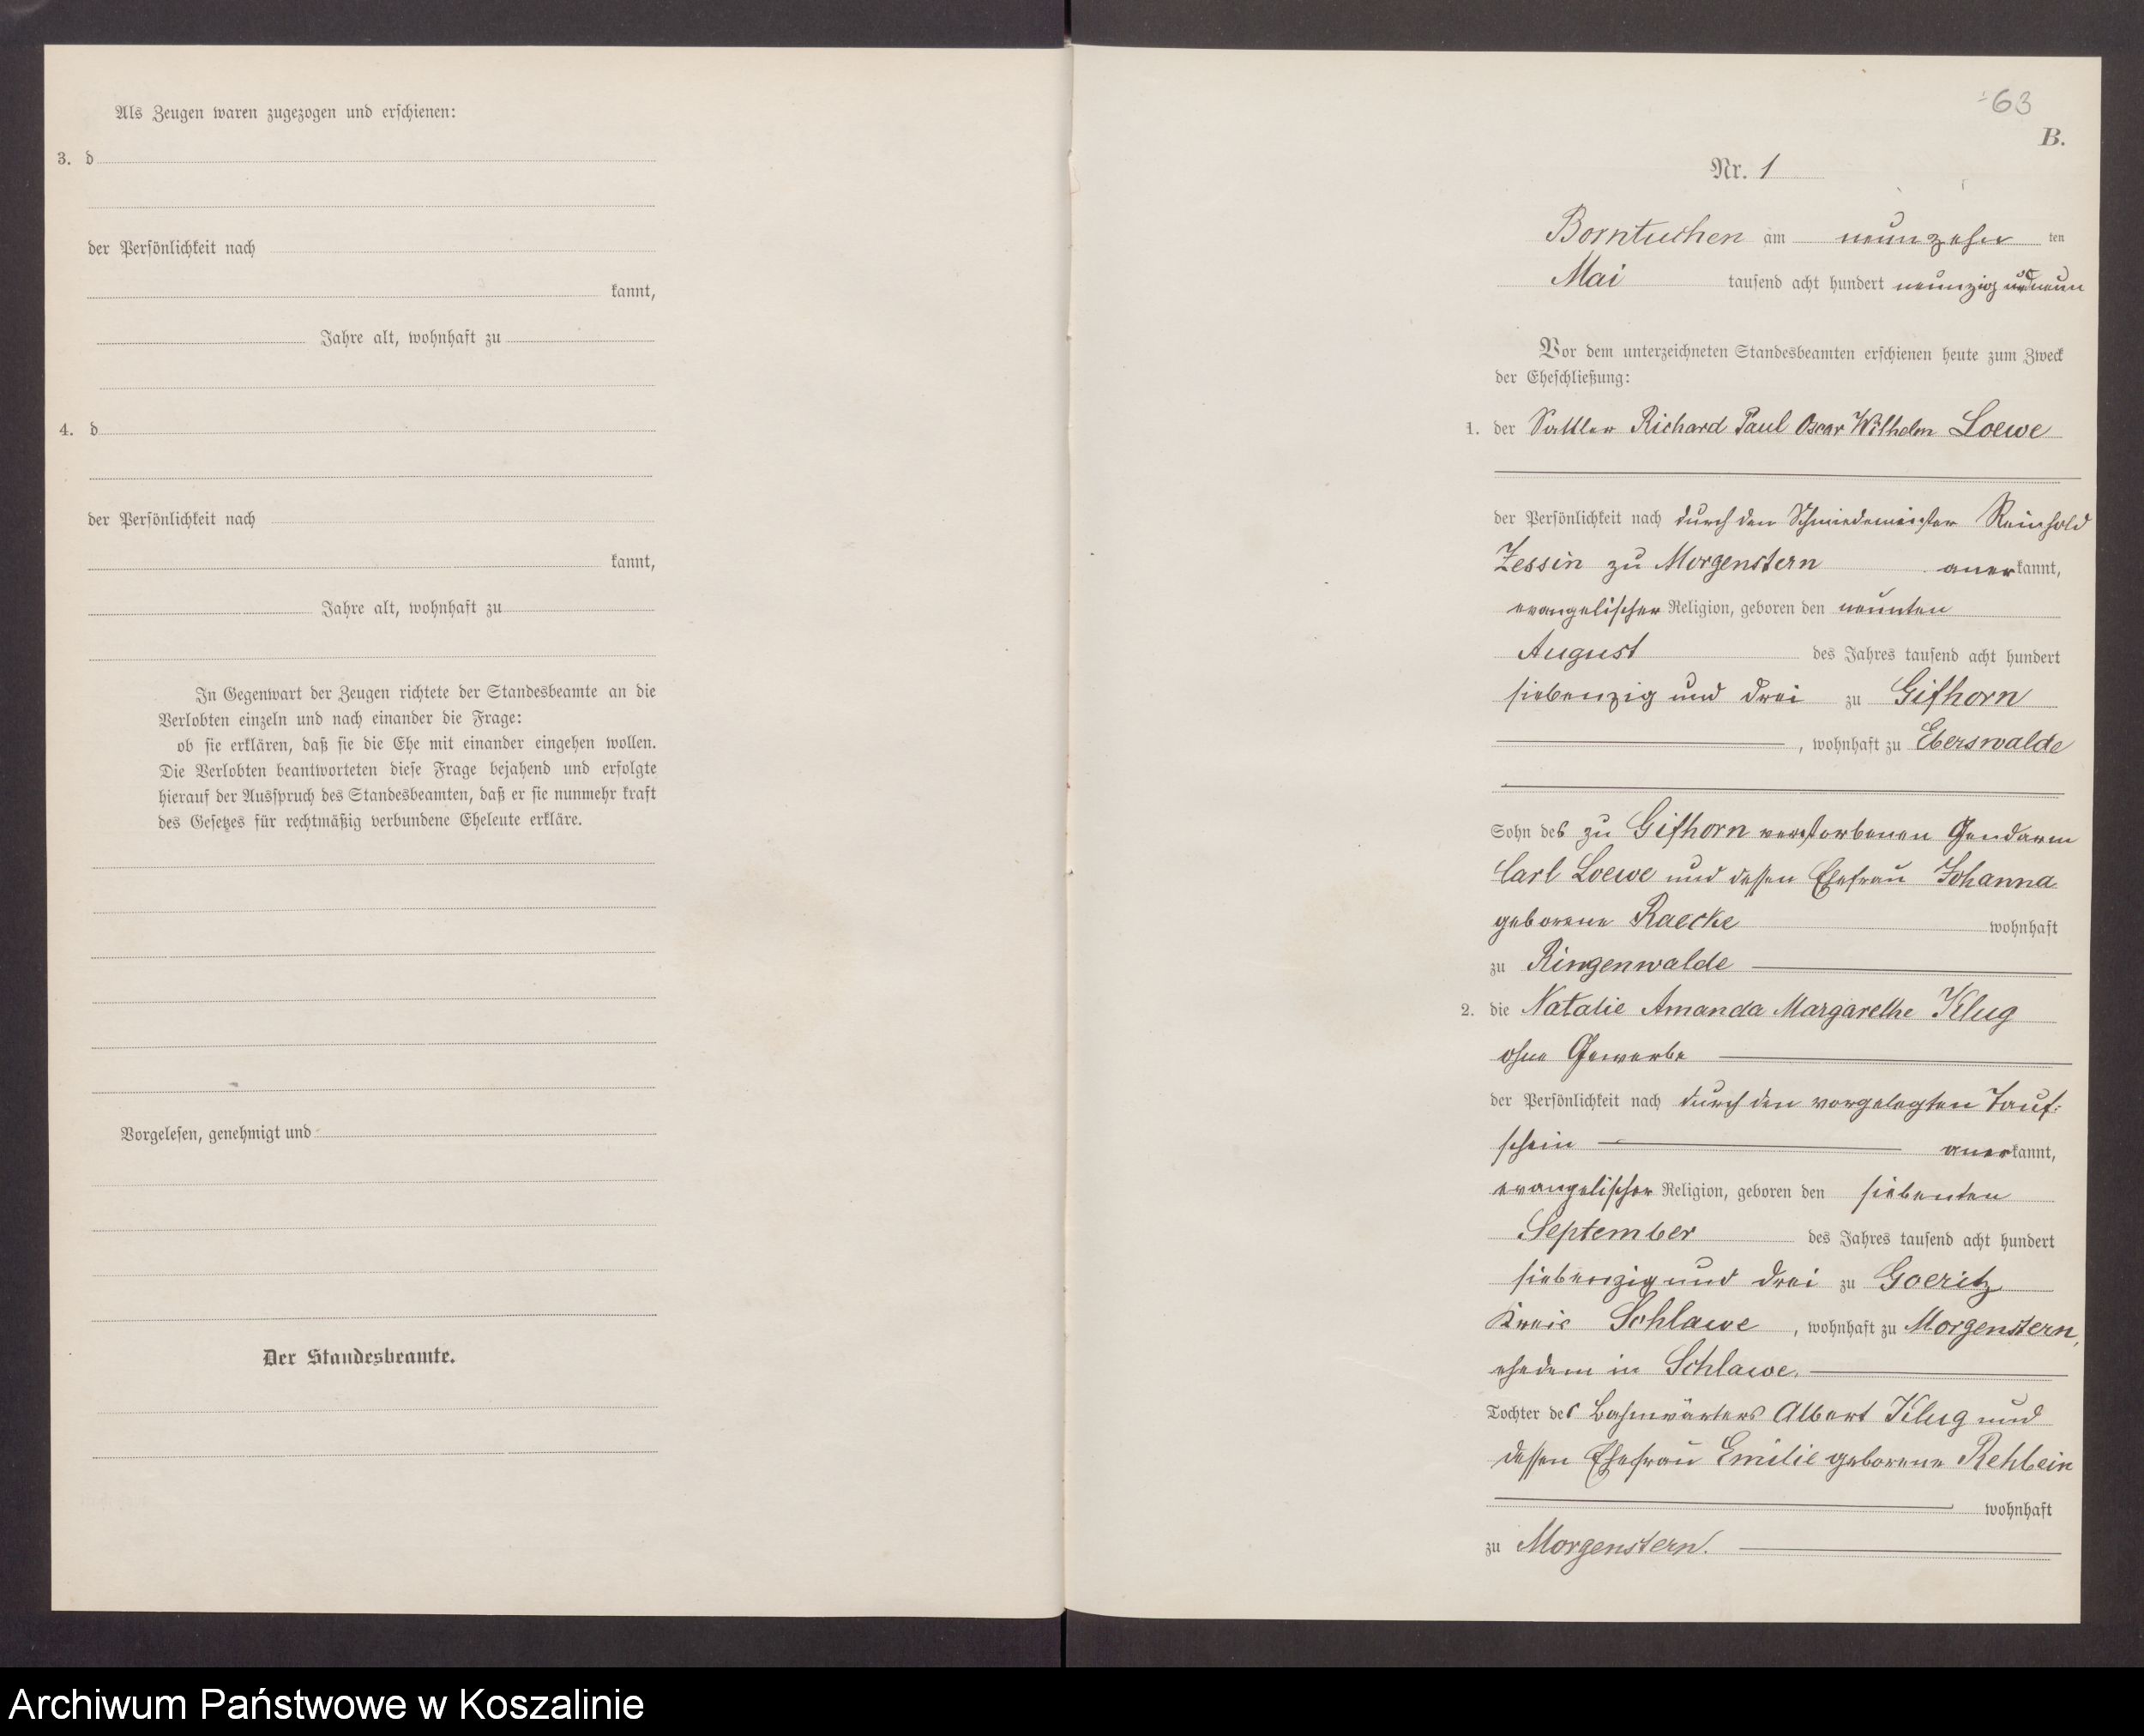 Als Zeugen waren zugezogen und erschienen:
3. d
der Persönlichkeit nach
kannt,
Jahre alt, wohnhaft zu
4. d
der Persönlichkeit nach
kannt,
Jahre alt, wohnhaft zu
In Gegenwart der Zeugen richtete der Standesbeamte an die
Verlobten einzeln und nach einander die Frage:
ob sie erklären, daß sie die Ehe mit einander eingehen wollen.
Die Verlobten beantworteten diese Frage bejahend und erfolgte
hierauf der Ausspruch des Standesbeamten, daß er sie nunmehr kraft
des Gesetzes für rechtmäßig verbundene Eheleute erkläre.
Vorgelesen, genehmigt und
Der Standesbeamte.
63
B.
Nr. 1
Borntuchen am neunzehn ten
Mai tausend acht hundert neunzig und neun
Vor dem unterzeichneten Standesbeamten erschienen heute zum Zweck
der Eheschließung:
1. der Sattler Richard Paul Oscar Wilhelm Loewe
der Persönlichkeit nach durch den Schmiedemeister Reinhold
Zessin zu Morgenstern anerkannt,
evangelischer Religion, geboren den neunten
August des Jahres tausend acht hundert
siebenzig und drei zu Gifhorn
, wohnhaft zu Eberswalde
Sohn des zu Gifhorn verstorbenen Gendarm
Carl Loewe und dessen Ehefrau Johanna
geborene Raecke wohnhaft
zu Ringenwalde
2. die Natalie Amanda Margarethe Klug
ohne Gewerbe
der Persönlichkeit nach durch den vorgelegten Tauf:
schein anerkannt,
evangelischer Religion, geboren den siebenten
September des Jahres tausend acht hundert
siebenzig und drei zu Goeritz
Kreis Schlawe, wohnhaft zu Morgenstern,
ehedem in Schlawe.
Tochter des Bahnwärters Albert Klug und
dessen Ehefrau Emilie geborene Rehbein
wohnhaft
zu Morgenstern.
Archiwum Państwowe w Koszalinie